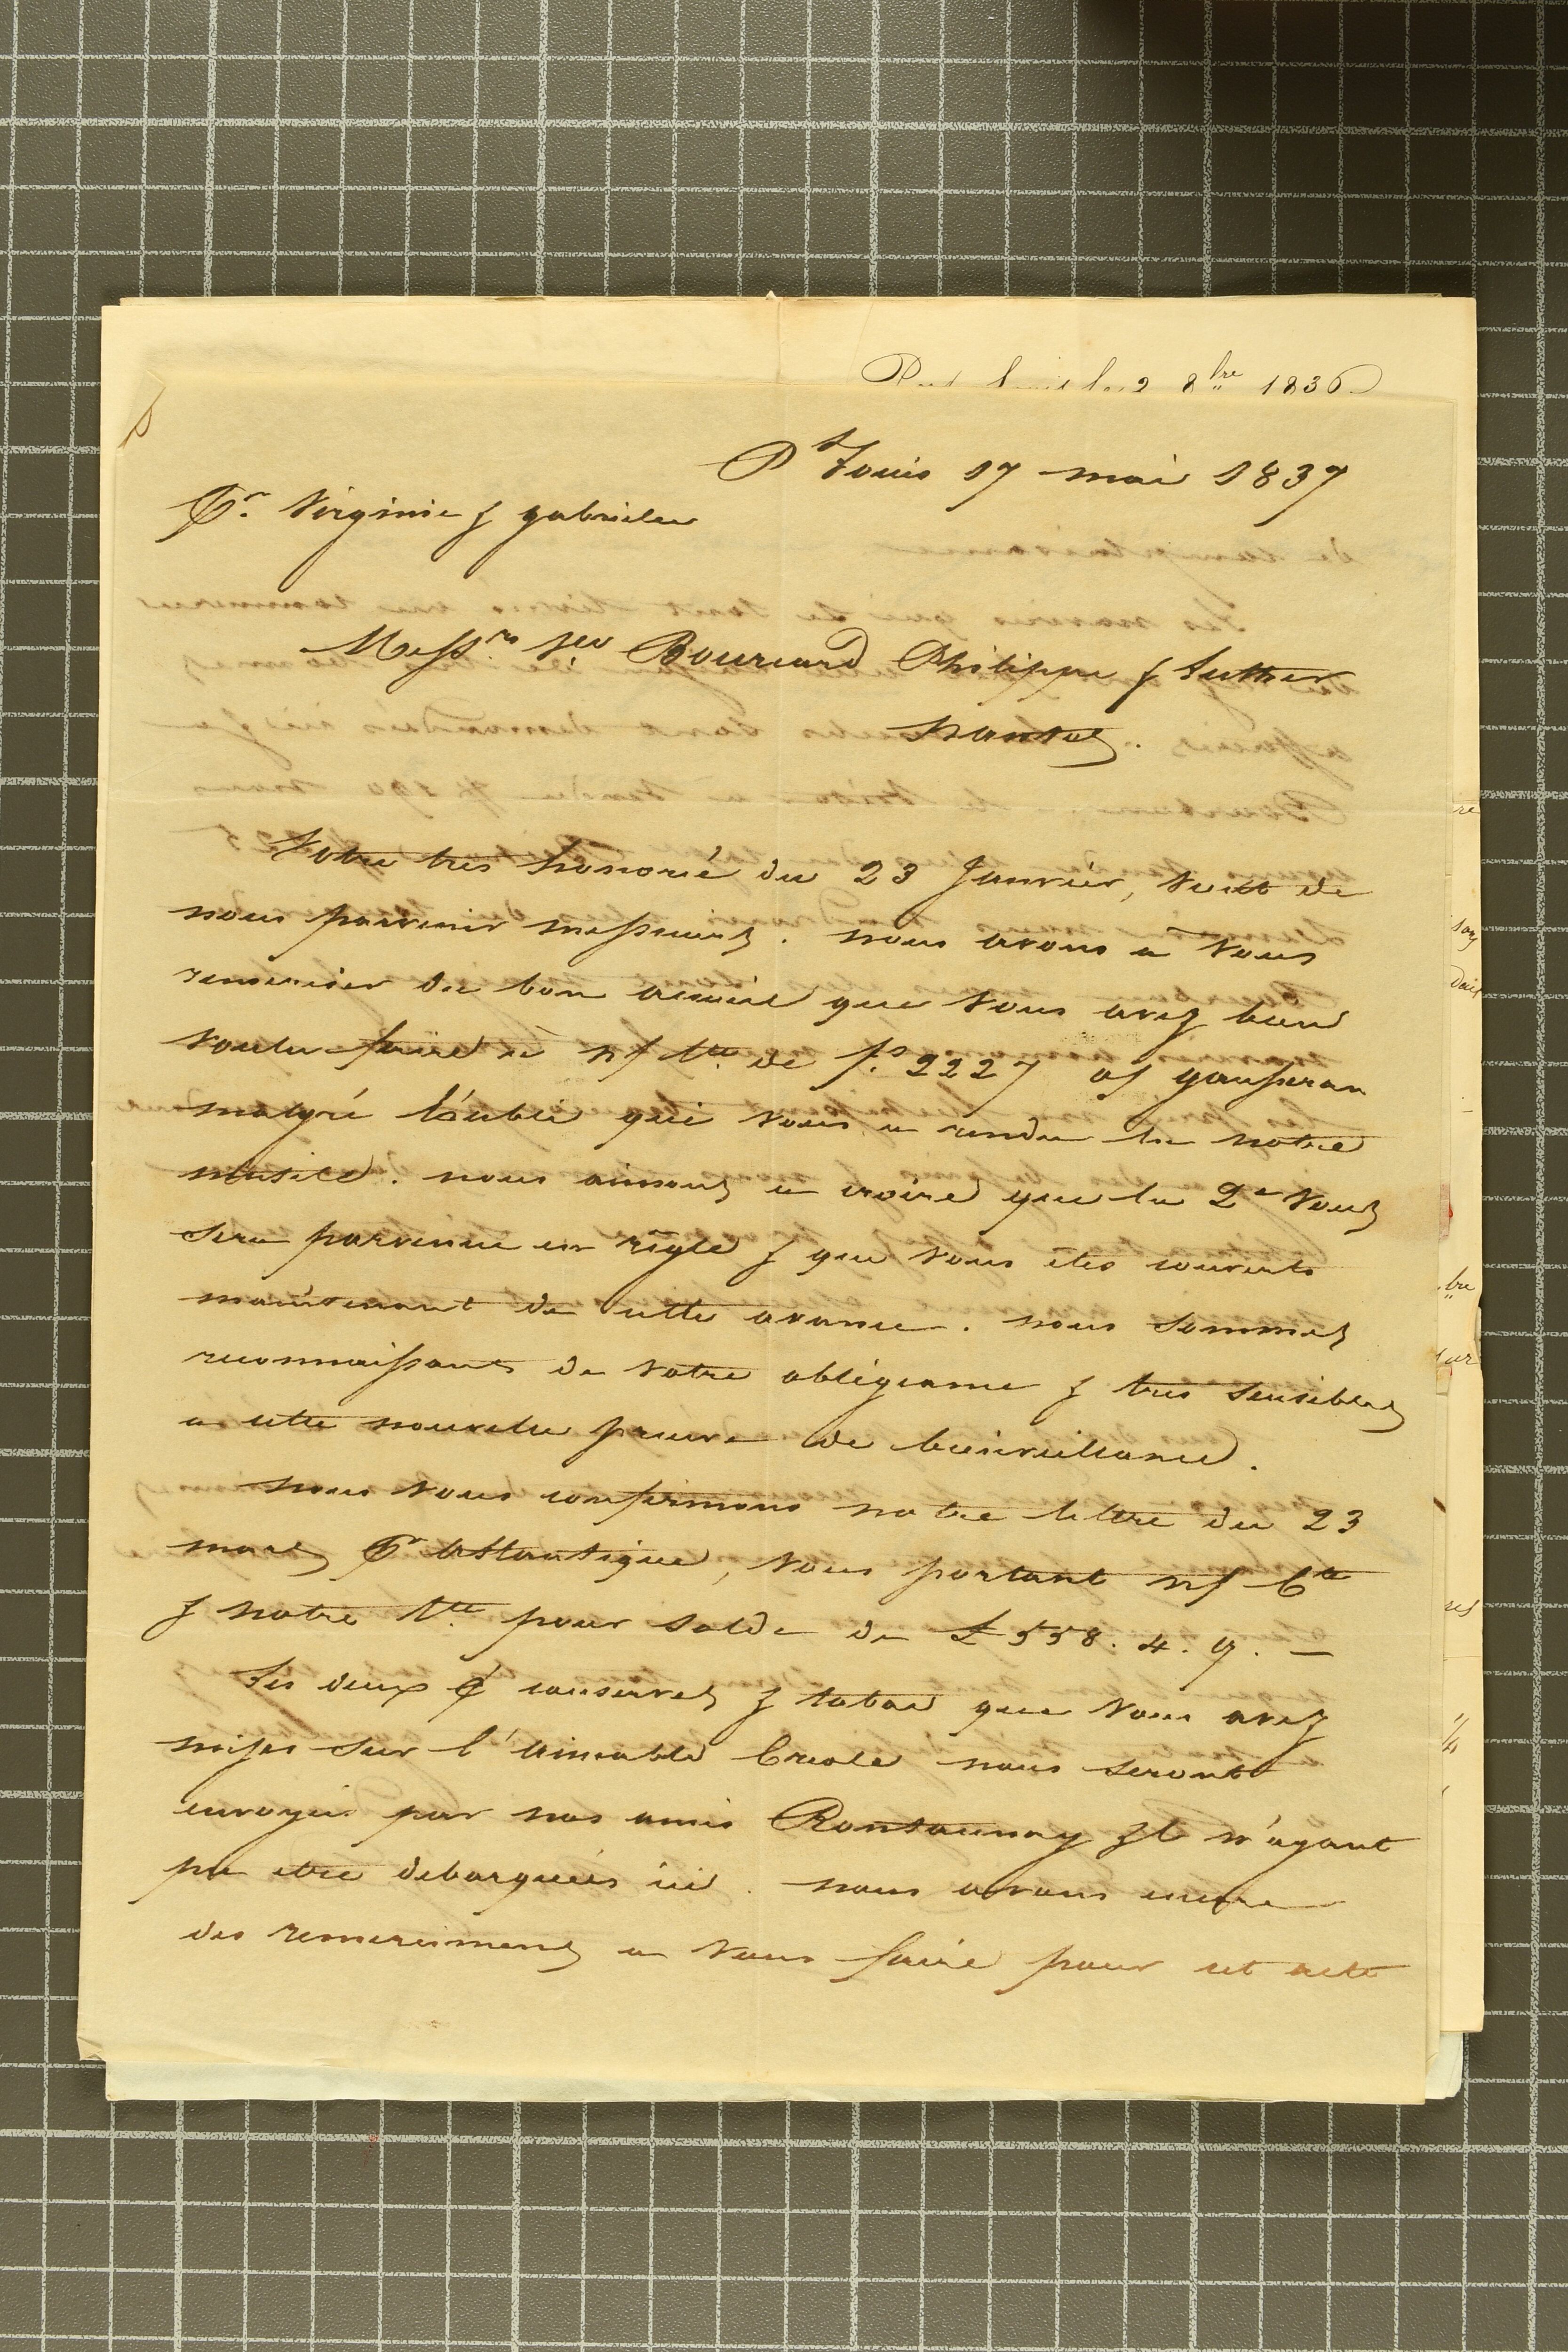 Port Louis le 2 8bre 1836
Pt Louis 17 mai 1837
Pr. Virginie & gabrielle
Messrs. Vve Bourcard Philippe & Luther
Nantes.
Votre très honorée du 23 Janvier, vient de
nous parvenir messieurs. nous avons à vous
remercier du bon accueil que vous avez bien
voulu faire à n/ tte. de f.s 2227 o/ gauseran
malgré l'oubli qui vous a rendu la notre
inutile. nous aimons a croire que la 2e vous
sera parvenue en règle & que vous êtes couverts
maintenant de cette avance. nous sommes
reconnaissants de votre obligeance & très sensibles
a cette nouvelle preuve de bienveillance.
nous vous confirmons notre lettre du 23
mars Pr atlantique, vous portant n/ Cte
& notre tte. pour solde de £ 558. 4. 9. —
Les deux conserves & tabac que vous avez
mises sur l'aimable Creole nous seront
envoyés par nos amis Rontaunay & C n'ayant
pu etre debarqués ici. nous avons encore
des remerciments a vous faire pour cet acte